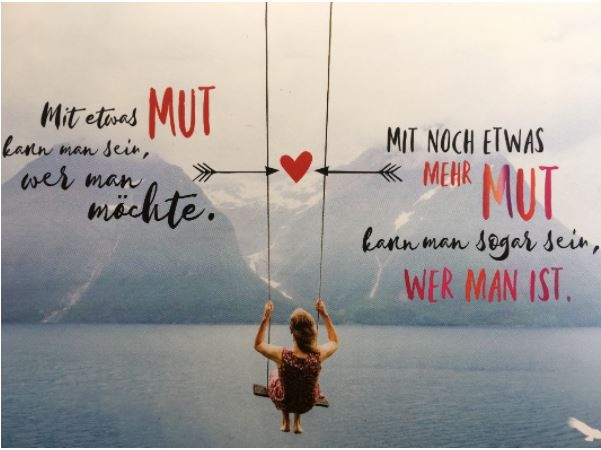 Mit etwas MUT
kann man sein,
wer man
möchte.
MIT NOCH ETWAS
MEHR MUT
kann man sogar sein,
WER MAN IST.